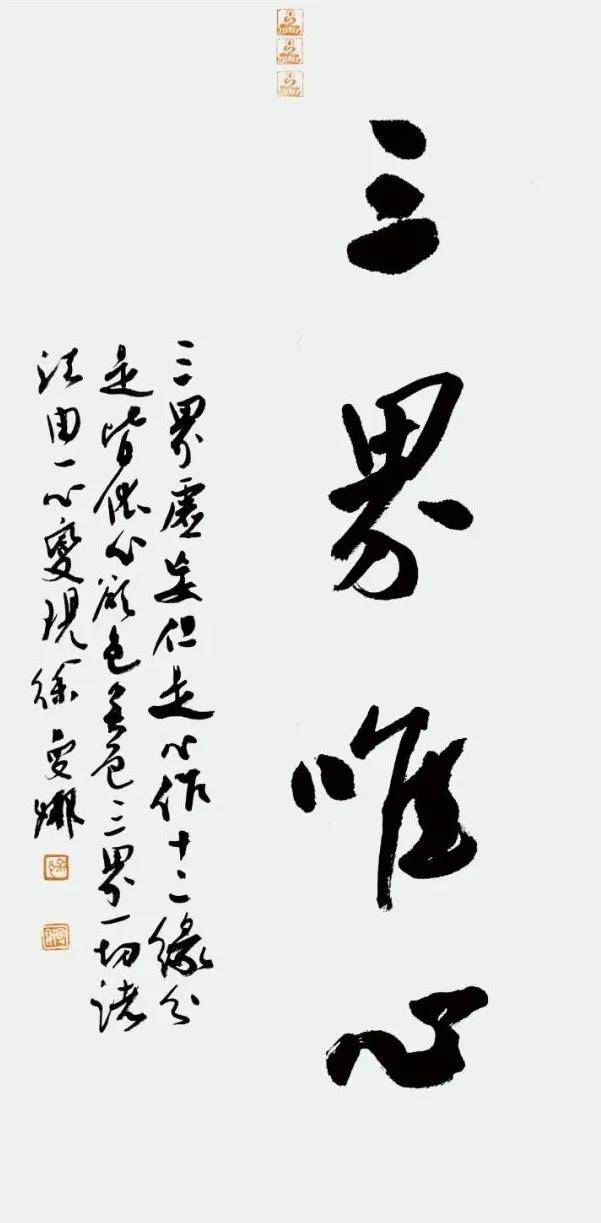 三界唯心
三界虛妄但是心作十二緣分
是皆依心欲色無色三界一切諸
法由一心變現徐娜